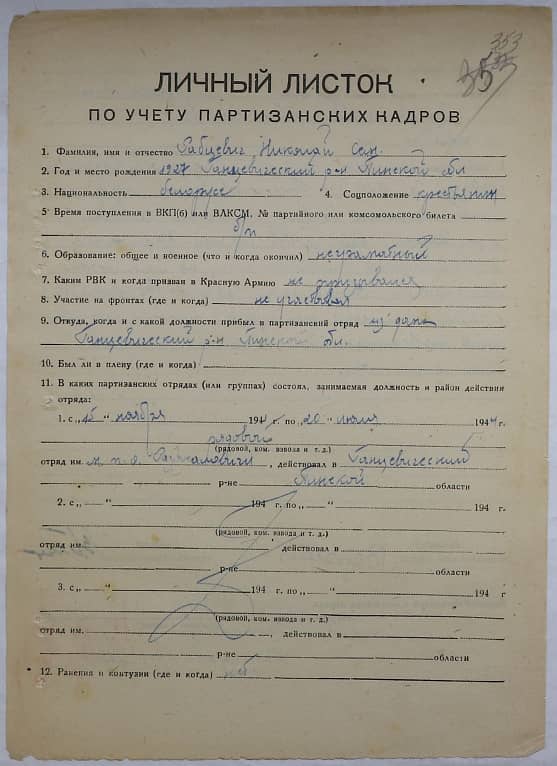 353
ЛИЧНЫЙ ЛИСТОК
ПО УЧЕТУ ПАРТИЗАНСКИХ КАДРОВ
1. Фамилия, имя и отчество Рабцевич Николай Сем.
2. Год и место рождения 1927 Ганцевический р-н Пинской обл
3. Национальность белорусс 4. Соцположение крестьянин
5 Время поступления в ВКП(б) или ВЛКСМ, № партийного или комсомольского билета
б/п
6. Образование: общее и военное (что и когда окончил) неграмотный
7. Каким РВК и когда призван в Красную Армию не призывался
8. Участие на фронтах (где и когда) не участвовал
9. Откуда, когда и с какой должности прибыл в партизанский отряд из дома
Ганцевический р-н Пинской обл.
10. Был ли в плену (где и когда)
11. В каких партизанских отрядах (или группах) состоял, занимаемая должность и район действия
отряда:
1. с „15“ ноября 194 г. по „20“ июля 1944 г.
рядовой
(рядовой, ком. взвода и т. д.)
отряд им. , действовал в Ганцевический
р-не Пинской области
2. с „ “ 194 г. по „ “ 194 г
(рядовой, ком. взвода и т. д.)
отряд им. действовал в
р-не области
3. с „ “ 194 г. по „ “ 194 г
(рядовой, ком. взвода и т. д.)
отряд им. , действовал в
р-не области
12. Ранения и контузии (где и когда) нет